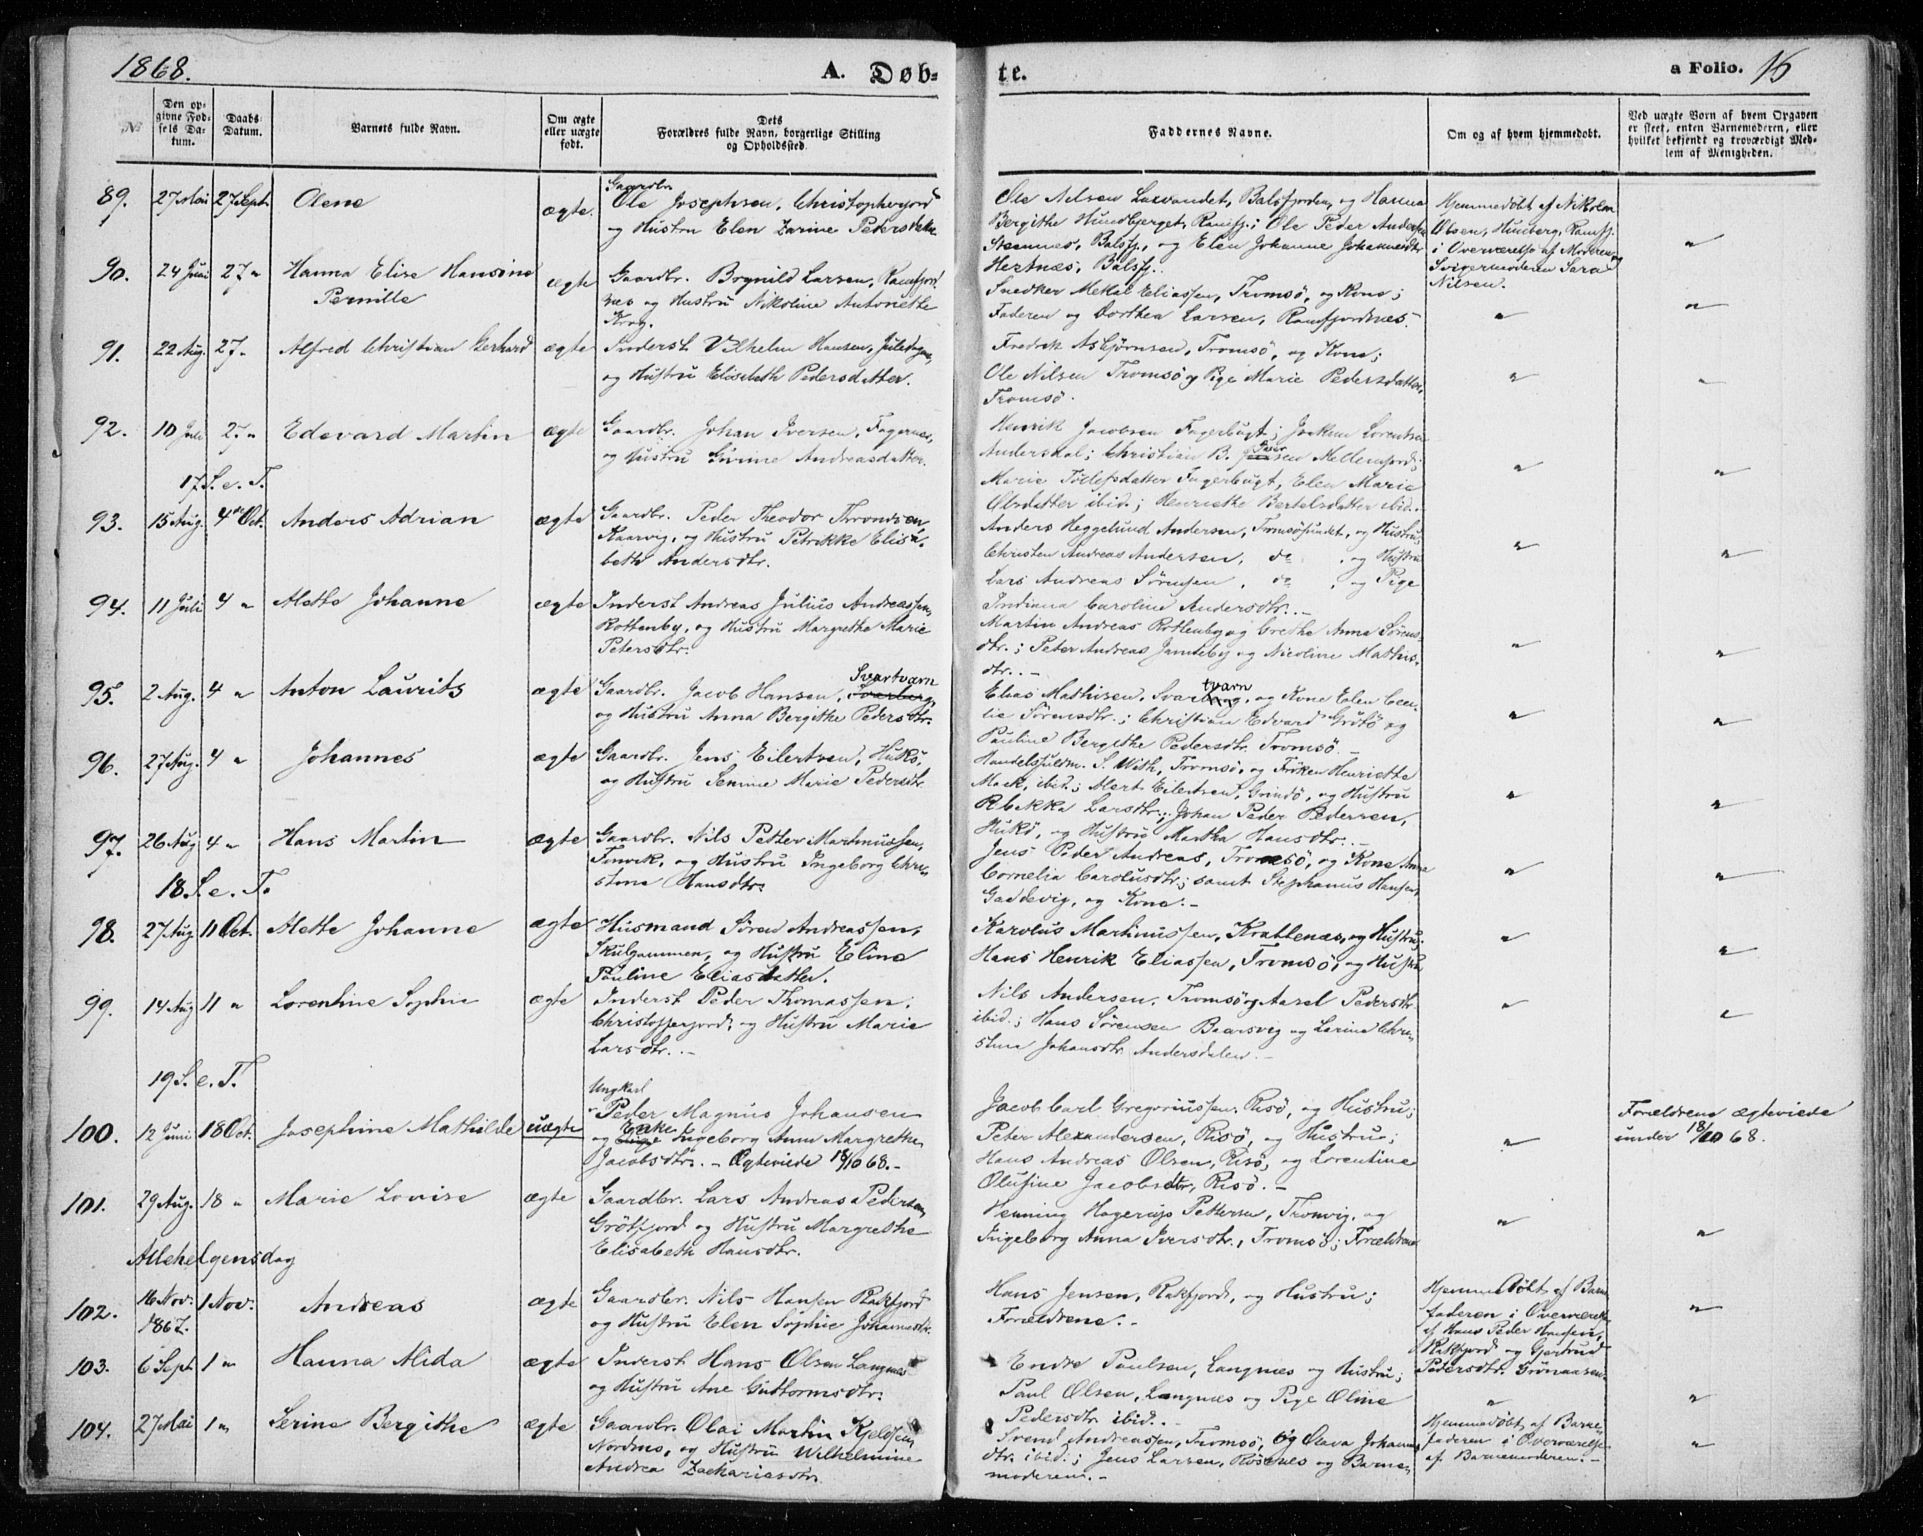 1868.
A. Døb-
te.
a Folio. 16
№
Den op-
givne Fød-
sels Da-
tum.
Daabs
Datum.
Barnets fulde Navn.
Om ægte
eller uægte
født.
Dets
Forældres fulde Navn, borgerlige Stilling
og Opholdssted.
Faddernes Navne.
Om og af hvem hjemmedøbt.
Ved uægte Børn af hvem Opgaven
er skeet, enten Barnemoderen, eller
hvilket bekjendt og troværdigt Med-
lem af Menigheden.
89. 27 Mai 27 Sept. Olene ægte.
Gaardbr.
Ole Josephsen, Christopherjord
og Hustru Elen Zarine Pedersdatter
Ole Nilsen Laxvandet, Balsfjorden, og Hanna
Bergithe Hundbjerget, Ramfj.; Ole Peder Andersen
Steennes, Balsfj., og Elen Johanne Johannesdtr.
Hertnes, Balsfj.
Hjemmedøbt af Nikolai
Olsen, Hunberg, Ramfj.
i Overværelse af Moderen og
Svigermoderen Sara
Nilsen.
"
90. 24 Juni 27 " Hanna Elise Hansine
Pernille
ægte
Gaardbr. Brynild Larsen, Ramfjord-
nes og Hustru Nikoline Antonette
Krog.
Snedker Mekal Eliassen, Tromsö, og Kone;
Faderen og Dorthea Larsen, Ramfjordnes.
" "
91. 22 Aug. 27 " Alfred Christian Gerhard ægte
Inderst Vilhelm Hansen,
og Hustru Elisabeth Pedersdatter.
Fredrik Asbjørnsen, Tromsö, og Kone;
Ole Nilsen Tromsö og Pige Marie Pedersdatter,
Tromsö.
" "
92. 10 Juli 27 " Edevard Martin ægte
Gaardbr. Johan Iversen, Fagernes,
og Hustru Andreasdatter.
Henrik Jacobsen Fagerbugt; Joakim Lorentsen
Andersdal; Christian B. Mellemjord;
Marie Tollefsdatter Fagerbugt, Elen Marie
Olsdatter ibid.; Henriette Bertelsdatter ibid.
" "
17 S. e. T.
93. 15 Aug. 4de Oct. Anders Adrian ægte
Gaardbr. Peder Theodor Throndsen,
Kaarvig, og Hustru Petrikke Elisa-
beth Andersdtr.
Anders Heggelund Andersen, Tromsösundet, og Hustru;
Christen Andreas Andersen, do og Hustru
Lars Andreas Sørensen, do og Pige
Indiana Caroline Andersdtr. -
" "
94. 11 Juli 4 " Alette Johanne ægte
Inderst Andreas Julius Andreassen,
Rottenby, og Hustru Margrethe Marie
Petersdtr.
Martin Andreas Rottenby og Grethe Anna Sørens-
dtr.; Peter Andreas Janteby og Nicoline Mathis-
dtr. -
" "
95. 2 Aug. 4 " Anton Laurits ægte
Svartvarn
Gaardbr. Jacob Hansen,
og Hustru Anna Bergithe Pedersdtr.
Elias Mathisen, Svartvarn, og Kone Elen Cecilie
Sørensdtr.; Christian Edvard Grötö og
Pauline Bergithe Pedersdtr. Tromsö. -
" "
96. 27 Aug. 4 " Johannes ægte
Gaardbr. Jens Eilertsen, Hukö,
og Hustru Semine Marie Pedersdtr.
Handelsfuldm. S. With, Tromsö, og Frøken Henriette
Mack, ibid.; Mert Eilertsen, Grindö, og Hustru
Rebekka Larsdtr.; Johan Peder Pedersen,
Hukö, og Hustru Martha Hansdtr. -
" "
97. 26 Aug 4 " Hans Martin ægte
Gaardbr. Nils Petter Martinussen,
Finvik, og Hustru Ingeborg Chri-
stine Hansdtr.
Jens Peder Andreas, Tromsö, og Kone Anna
Cornelia Carolusdtr.; samt Stephanus Hansen,
Gaddevig, og Kone. -
" "
18 S. e. T.
98. 27 Aug. 11 Oct. Alette Johanne ægte
Husmand Sören Andreassen,
Skulgammen, og Hustru Elina
Pauline Eliasdatter.
Karolus Martinussen, Krattenes, og Hustru;
Hans Henrik Eliassen, Tromsö, og Hustru.
" "
99. 14 Aug 11 " Lorentine Sophie ægte
Inderst Peder Thomassen,
Christofferjord, og Hustru Marie
Larsdtr. -
Nils Andersen, Tromsö og Aarel Pedersdtr.
ibid.; Hans Sørensen Baarsvig og Larina Chri-
stine Johansdtr. Andersdalen. -
" "
19 S. e. T.
100. 12 Juni 18 Oct. Josephine Mathilde uægte
Ungkarl
Peder Magnus Johansen
og Enke Ingeborg Anna Margrethe
Jacobsdtr. - Ægteviede 18/10 68. -
Jacob Carl Gregoriussen, Risö, og Hustru;
Peter Alexandersen, Risö, og Hustru;
Hans Andreas Olsen, Risö, og Lorentine
Olufine Jacobsdtr, Risö. -
"
Forældrene ægteviede
under 18/10 68.
101. 29 Aug. 18 " Marie Lovise ægte
Gaardbr. Lars Andreas Pedersen,
Grötfjord og Hustru Margrethe
Elisabeth Hansdtr.
Henning Hagerup Pettersen, Tromvig, og
Ingeborg Anna Iversdtr., Tromsö; Forældrene
" "
Allehelgensdag
102. 16 Nov.
1867. 1 Nov. Andreas ægte
Gaardbr. Nils Hansen Rakfjord
og Hustru Elen Sophie Johannesdtr.
Hans Jensen, Rakfjord, og Hustru;
Forældrene. -
Hjemmedøbt af Barne-
faderen i Overværelse
af Hans Peder Hansen,
Rakfjord og Gjertrud
Pedersdtr. Grönaasen.
"
103. 6 Sept. 1 " Hanna Alida ægte
Inderst Hans Olsen Langnes
og Hustru Ane Guttormsdtr.
Endre Paulsen, Langnes og Hustru;
Paul Olsen, Langnes og Pige Oline
Pedersdtr. ibid. -
" "
104. 27 Mai 1 " Serine Bergithe ægte
Gaardbr. Olai Martin Kjeldsen,
Nordnes, og Hustru Wilhelmine
Andrea Zachariasdtr.
Svend Andreassen, Tromsö, og Olava Johannes-
dtr. ibid.; Jens Larsen, Rosenes og Barne-
moderen. -
Hjemmedøbt af Barne-
faderen i Overværelse
af Barnemoderen. -
"